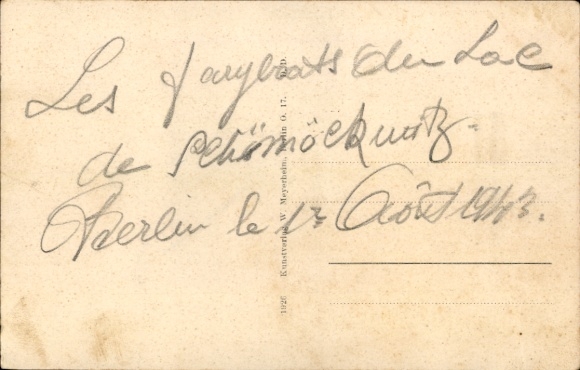 Les faryboats du Lac
de Schömöckwitz.
Berlin le 13 Août 1943.
1926 Kunstverlag W. Meyerheim, Berlin O. 17.